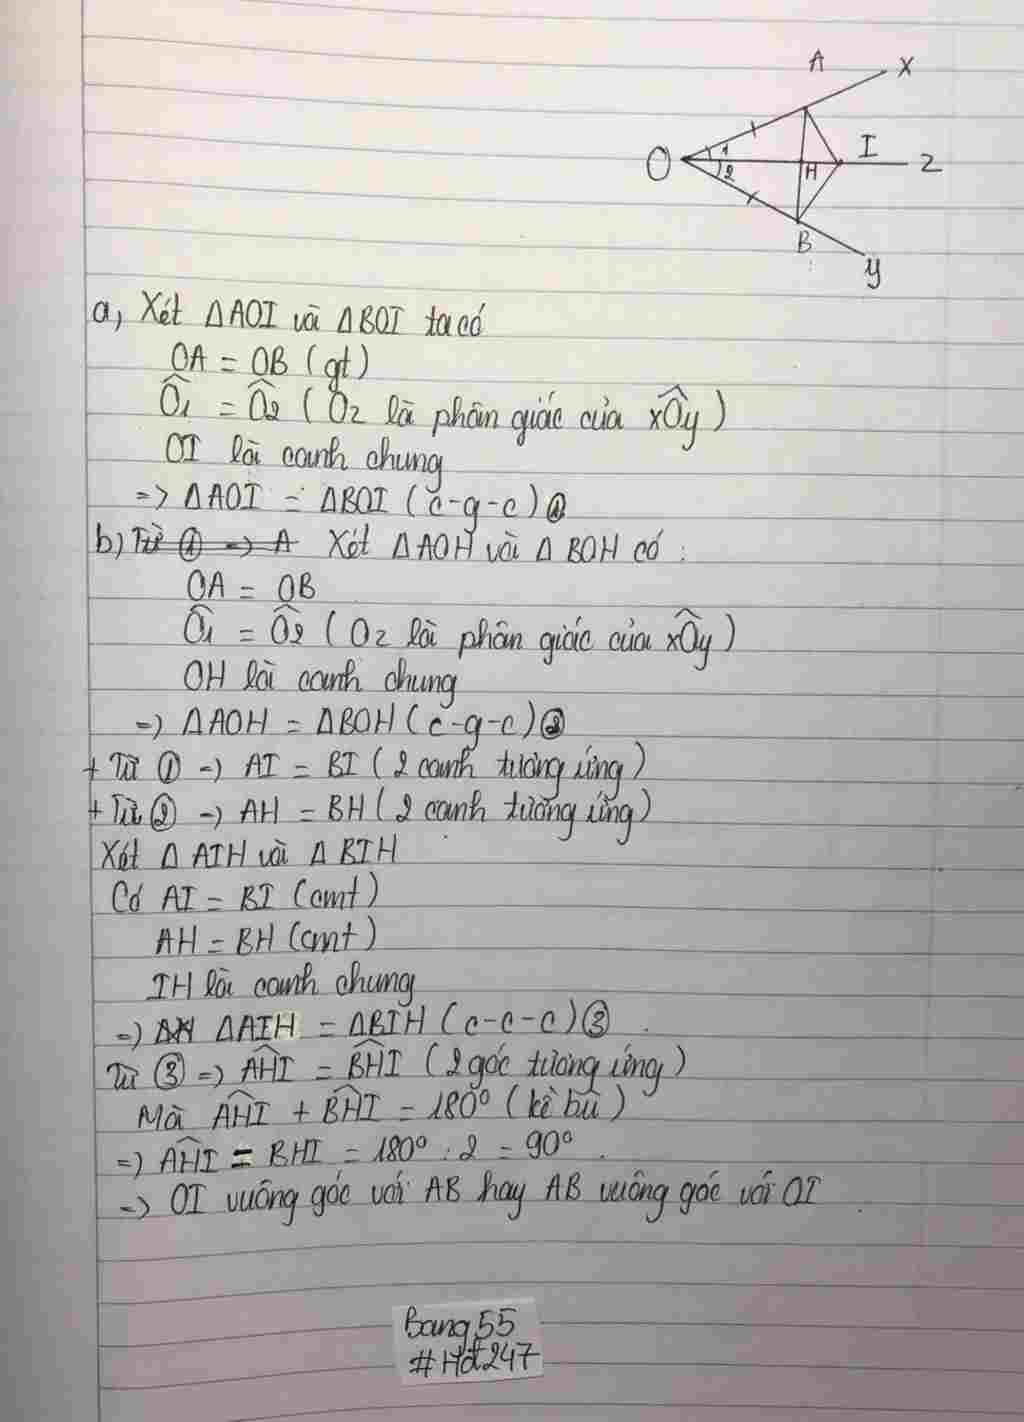 A
x
O
1
2
H
I
z
B
y
a, Xét ΔAOI và ΔBOI ta có
OA = OB (gt)
Ô1 = Ô2 ( Oz là phân giác của xÔy )
OI là canh chung
=> ΔAOI = ΔBOI (c-g-c) ①
b) Từ ① => A Xét ΔAOH và Δ BOH có :
OA = OB
Ô1 = Ô2 ( Oz là phân giác của xÔy )
OH là canh chung
=> ΔAOH = ΔBOH (c-g-c) ②
+ Từ ① => AI = BI ( 2 canh tương ứng )
+ Từ ② => AH = BH ( 2 canh tương ứng )
Xét Δ AIH và Δ BIH
Có AI = BI (cmt)
AH = BH (cmt)
IH là canh chung
=> ΔAIH = ΔBIH (c-c-c) ③ .
Từ ③ => AĤI = BĤI ( 2 góc tương ứng )
Mà AĤI + BĤI = 180° (kề bù)
=> AĤI = BHI = 180° : 2 = 90° .
=> OI vuông góc với AB hay AB vuông góc với OI .
Bang55
#Hd247